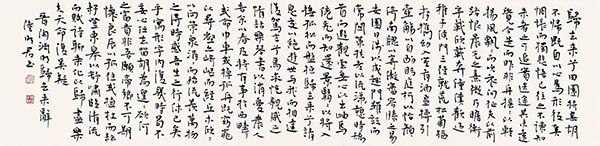 歸去来兮田園將蕪胡
不歸既自以心為形役奚
惆悵而獨悲悟已往之不諫知
来者之可追實迷途其未遠
覺今是而昨非舟搖搖以輕
颺風飄飄而吹衣問征夫以前
路恨晨光之熹微乃瞻衡
宇載欣載奔僮僕歡迎
稚子候門三徑就荒松菊猶
存攜幼入室有酒盈樽引
壺觴以自酌眄庭柯以怡顏
倚南窗以寄傲審容膝之易
安園日涉以成趣門雖設而
常關策扶老以流憩時矯
首而遐觀雲無心以出岫鳥
倦飛而知還景翳翳以將入
撫孤松而盤桓歸去来兮請
息交以絕遊世與我而相違
復駕言兮焉求悅親戚之
情話樂琴書以消憂農人
告余以春及將有事於西疇
或命巾車或棹孤舟既窈窕
以尋壑亦崎嶇而經丘木欣欣
以向榮泉涓涓而始流善萬物
之得時感吾生之行休已矣
乎寓形宇內復幾時曷不
委心任去留胡為遑遑欲何
之富貴非吾願帝鄉不可期
懷良辰以孤往或植杖而耘
耔登東皋以舒嘯臨清流
而賦詩聊乘化以歸盡樂
夫天命復奚疑
晉陶淵明歸去来辭